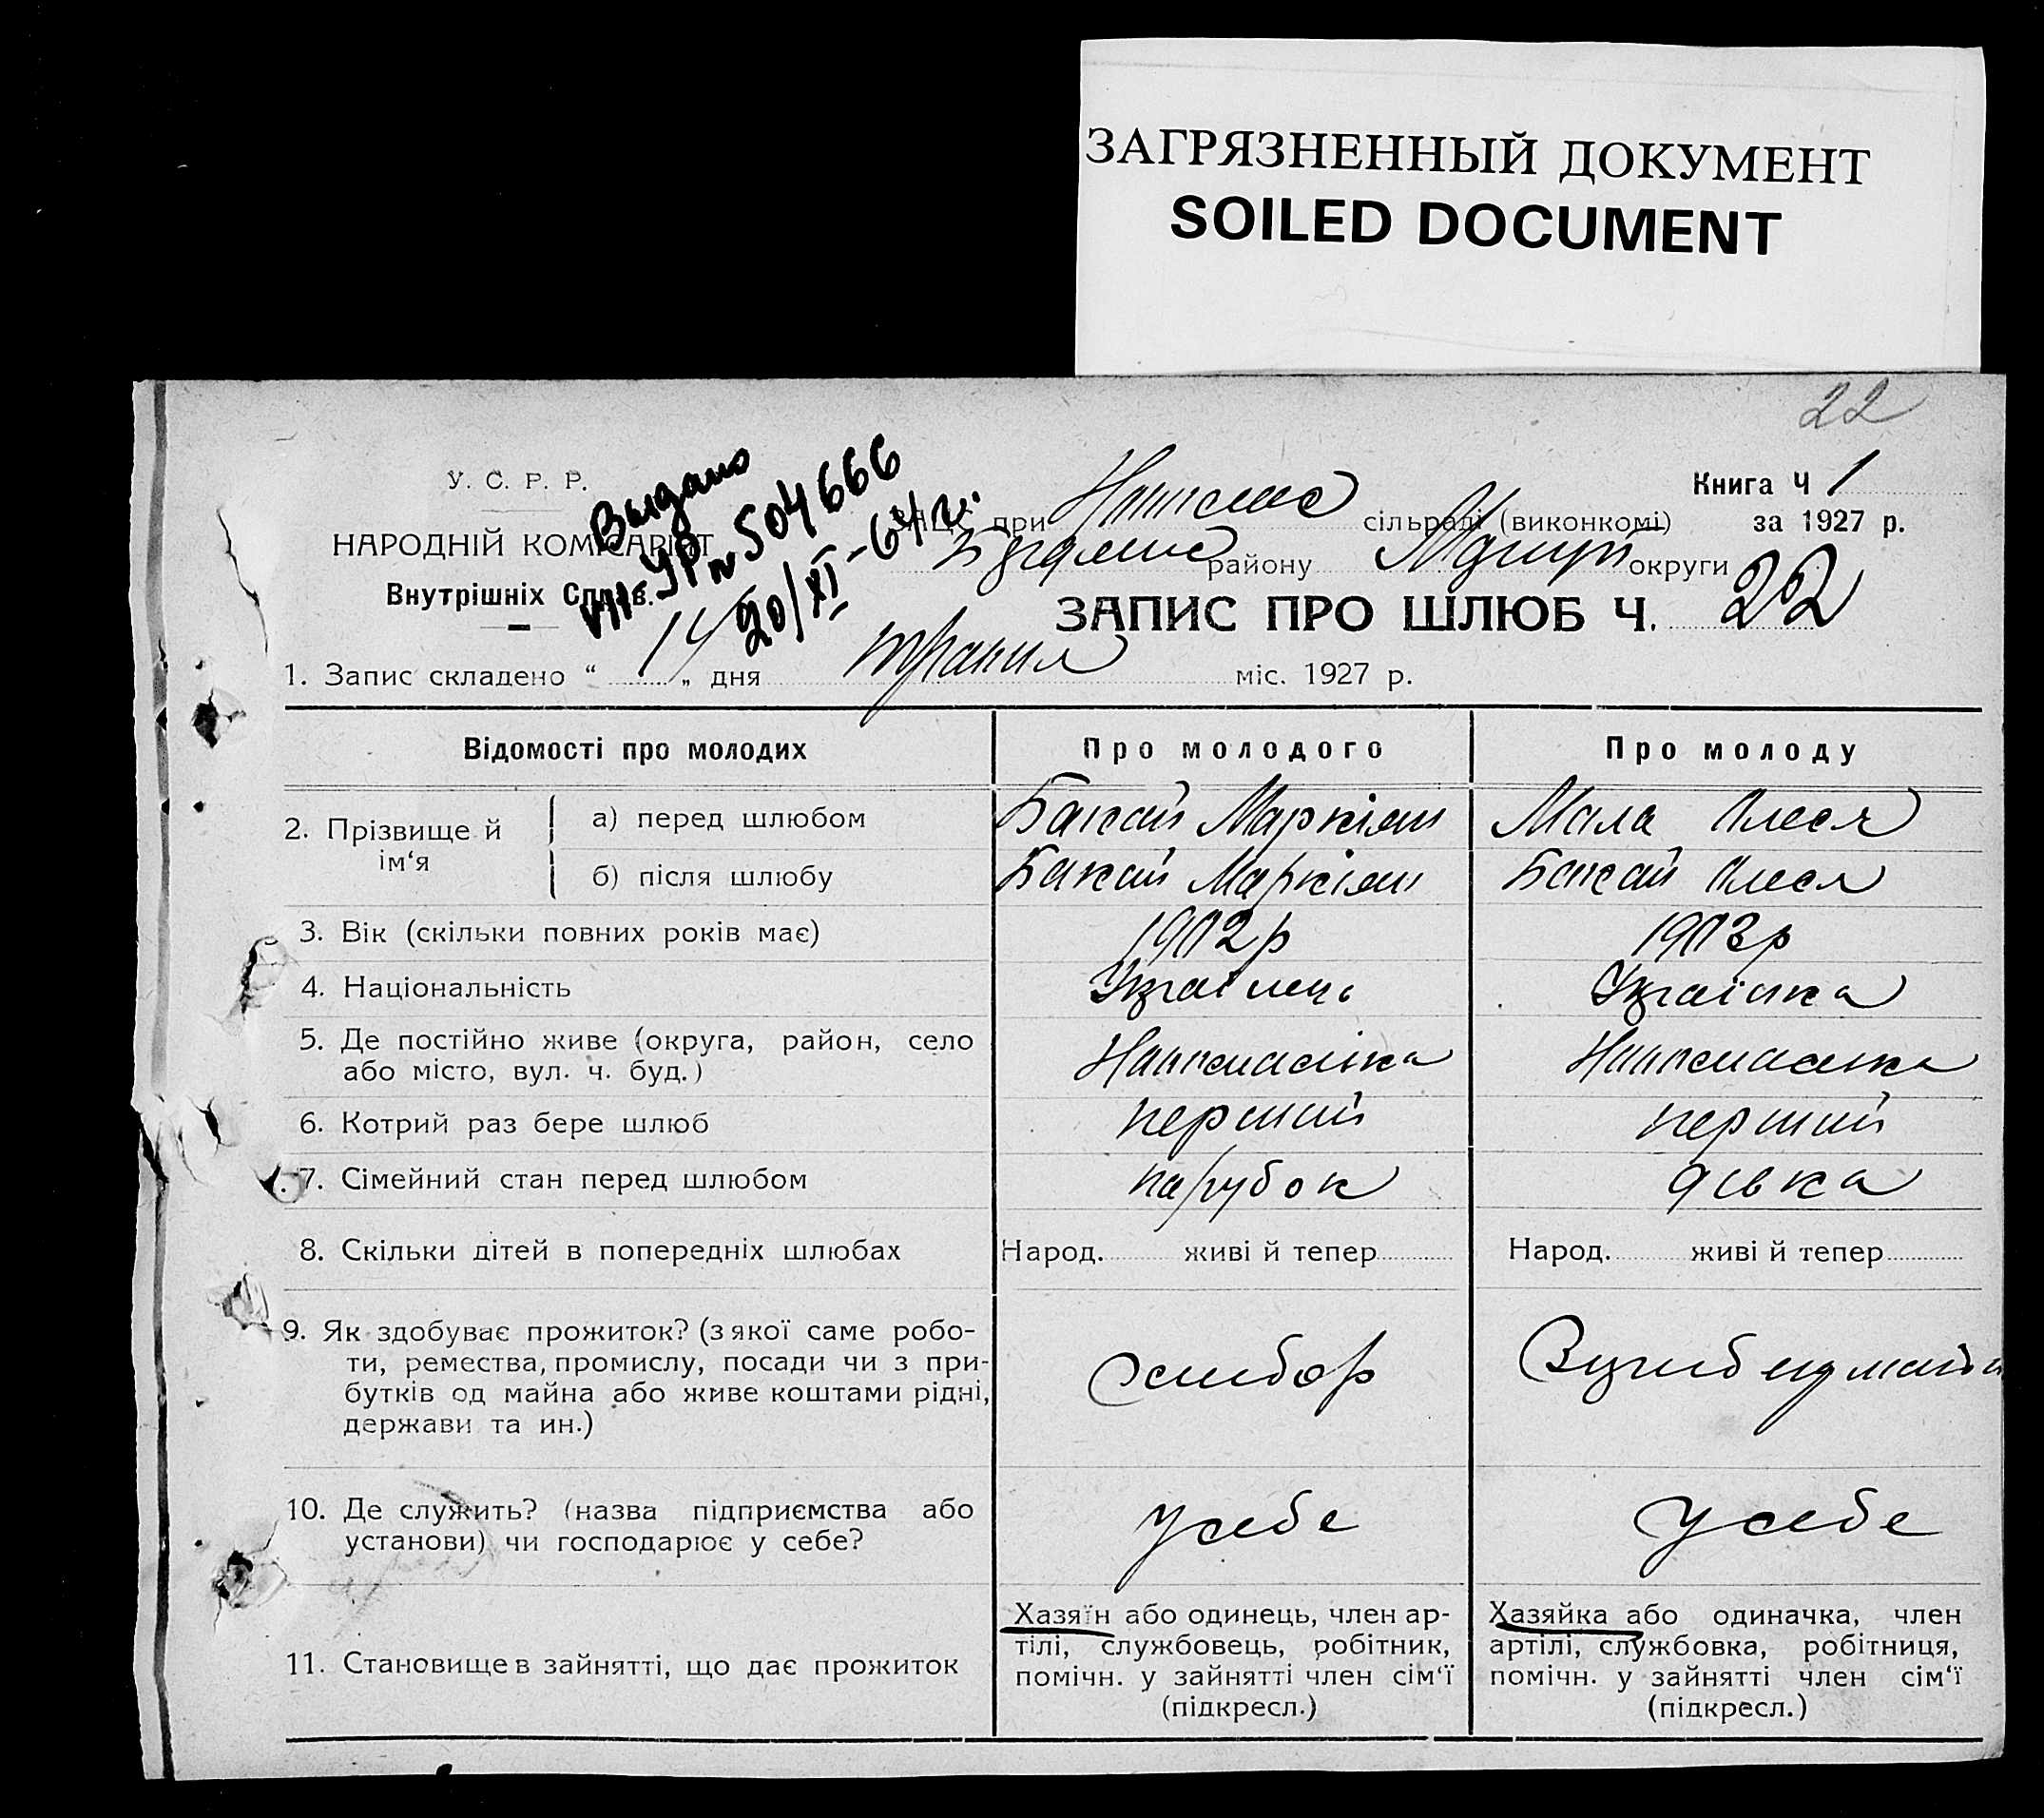 ЗАГРЯЗНЕННЫЙ ДОКУМЕНТ
SOILED DOCUMENT
22
У. С. Р. Р.
НАРОДНІЙ КОМІСАРІЯТ
Внутрішніх Справ.
Выдано
УР № 504666
20/XI-64 г.
ЗАЦС при сільраді (виконкомі)
району округи
Книга Ч 1
за 1927 р.
ЗАПИС ПРО ШЛЮБ Ч. 22
1. Запис складено “ 14 „ дня травня міс. 1927 р.
Відомості про молодих Про молодого Про молоду
2. Прізвище й ім‘я
а) перед шлюбом Бакай Маркіян Мала Олеся
б) після шлюбу Бакай Маркіян Бакай Олеся
3. Вік (скільки повних років має) 1902р 1903р
4. Національність Українець Українка
5. Де постійно живе (округа, район, село
або місто, вул. ч. буд.)
6. Котрий раз бере шлюб перший перший
7. Сімейний стан перед шлюбом парубок дівка
8. Скільки дітей в попередніх шлюбах Народ. живі й тепер Народ. живі й тепер
9. Як здобуває прожиток? (з якої саме робо-
ти, ремества, промислу, посади чи з при-
бутків од майна або живе коштами рідні,
держави та ин.)
хлібор
10. Де служить? (назва підприємства або
установи) чи господарює у себе?
у себе у себе
11. Становище в зайнятті, що дає прожиток
Хазяїн або одинець, член ар-
тілі, службовець, робітник,
помічн. у зайнятті член сім‘ї
(підкресл.)
Хазяйка або одиначка, член
артілі, службовка, робітниця,
помічн. у зайнятті член сім‘ї
(підкресл.)